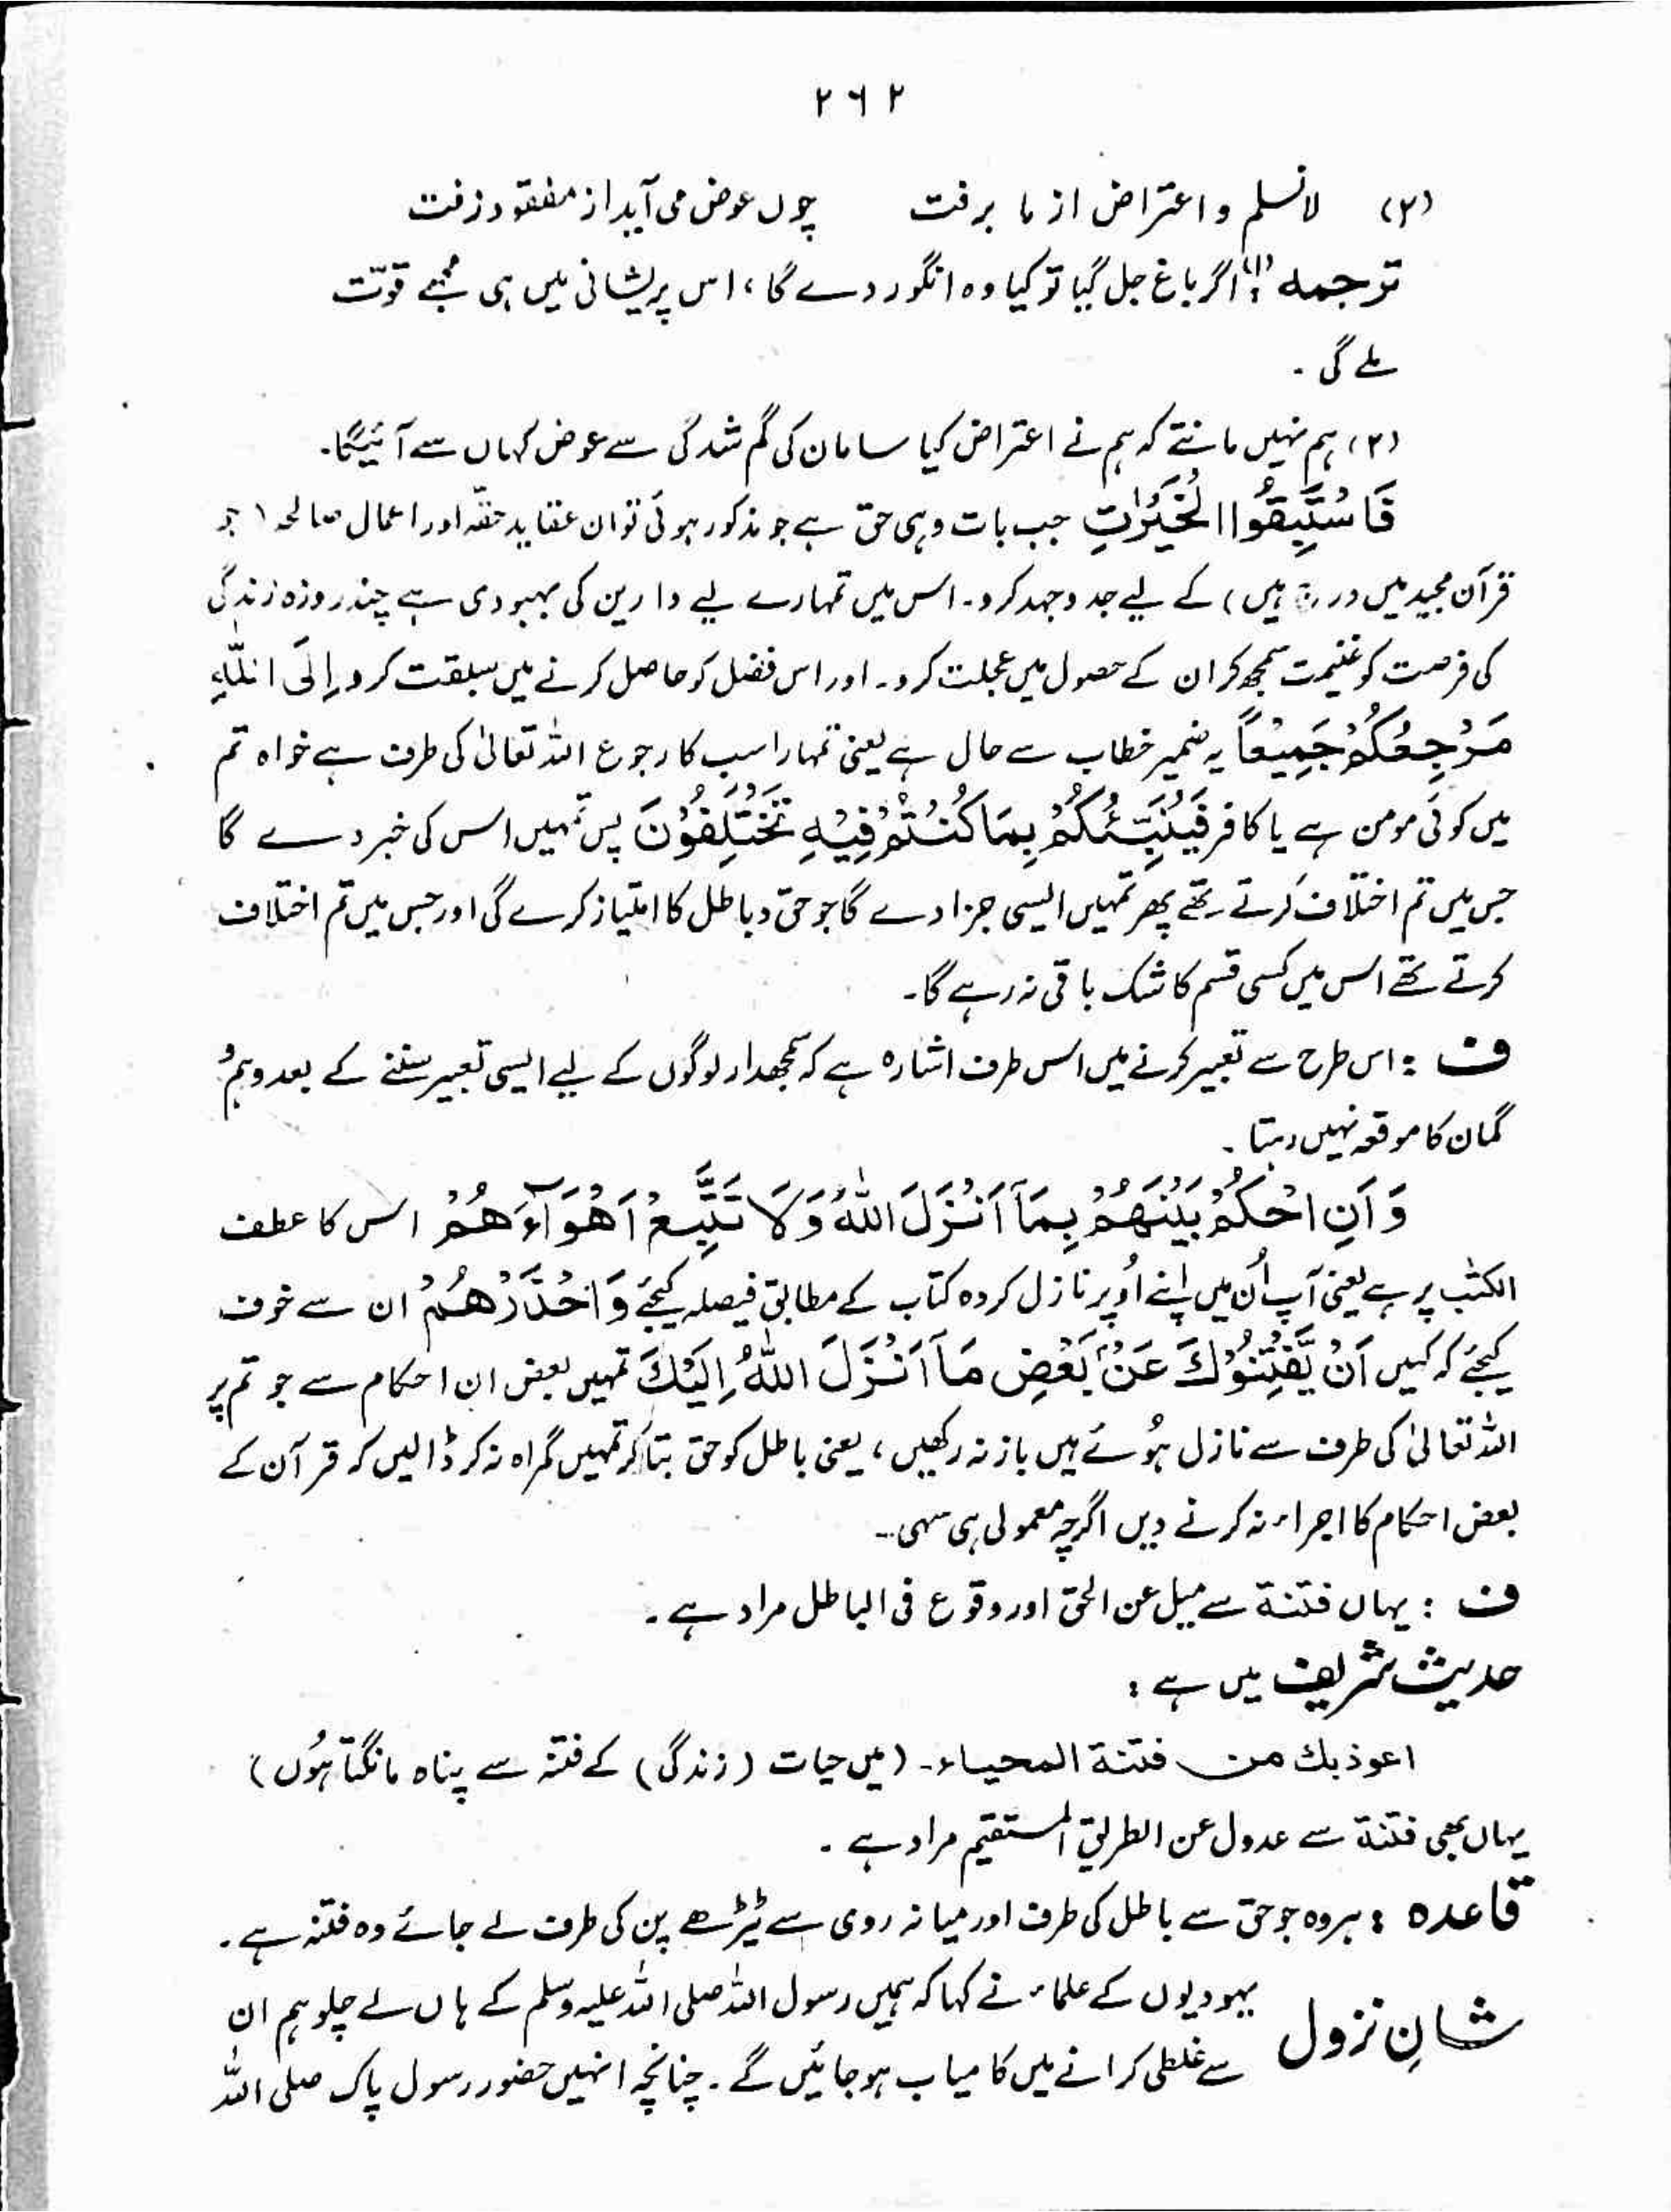 ۲۶۲
(۲) لانسلم و اعتراض از ما برفت چوں عوض می آید از مفقود زفت
ترجمہ : (۱) اگر باغ جل گیا تو کیا وہ انگور دے گا ، اس پریشانی میں ہی مجھے قوّت
ملے گی ۔
(۲) ہم نہیں مانتے کہ ہم نے اعتراض کیا سامان کی گم شدگی سے عوض کہاں سے آئیگا۔
فَاسْتَبِقُوا الْخَيْرٰتِ جب بات وہی حق ہے جو مذکور ہوئی تو ان عقاید حقّہ اور اعمال صالحہ (جو
قرآن مجید میں درج ہیں) کے لیے جدوجہد کرو۔ اس میں تمہارے لیے دارین کی بہبودی ہے چند روزہ زندگی
کی فرصت کو غنیمت سمجھ کر ان کے حصول میں عجلت کرو۔ اور اس فضل کو حاصل کرنے میں سبقت کرو اِلَى اللّٰهِ
مَرْجِعُكُمْ جَمِيْعًا یہ ضمیر خطاب سے حال ہے یعنی تمہارا سب کا رجوع اللہ تعالیٰ کی طرف ہے خواہ تم
میں کوئی مومن ہے یا کافر فَيُنَبِّئُكُمْ بِمَا كُنْتُمْ فِيْهِ تَخْتَلِفُوْنَ پس تمہیں اس کی خبر دے گا
جس میں تم اختلاف کرتے تھے پھر تمہیں ایسی جزا دے گا جو حق و باطل کا امتیاز کرے گی اور جس میں تم اختلاف
کرتے تھے اس میں کسی قسم کا شک باقی نہ رہے گا۔
ف : اس طرح سے تعبیر کرنے میں اس طرف اشارہ ہے کہ سمجھدار لوگوں کے لیے ایسی تعبیر سننے کے بعد وہم و
گمان کا موقعہ نہیں رہتا ۔
وَاَنِ احْكُمْ بَيْنَهُمْ بِمَآ اَنْزَلَ اللّٰهُ وَلَا تَتَّبِعْ اَهْوَآءَهُمْ اس کا عطف
الکتٰب پر ہے یعنی آپ اُن میں اپنے اُوپر نازل کردہ کتاب کے مطابق فیصلہ کیجئے وَاحْذَرْهُمْ ان سے خوف
کیجئے کہ کہیں اَنْ يَّفْتِنُوْكَ عَنْۢ بَعْضِ مَآ اَنْزَلَ اللّٰهُ اِلَيْكَ تمہیں بعض ان احکام سے جو تم پر
اللہ تعالیٰ کی طرف سے نازل ہُوئے ہیں باز نہ رکھیں ، یعنی باطل کو حق بتا کر تمہیں گمراہ نہ کر ڈالیں کہ قرآن کے
بعض احکام کا اجراء نہ کرنے دیں اگرچہ معمولی ہی سہی۔
ف : یہاں فتنۃ سے میل عن الحق اور وقوع فی الباطل مراد ہے ۔
حدیث شریف میں ہے :
اعوذ بك من فتنة المحیاء۔ (میں حیات (زندگی) کے فتنہ سے پناہ مانگتا ہُوں)
یہاں بھی فتنۃ سے عدول عن الطریق المستقیم مراد ہے ۔
قاعدہ : ہر وہ جو حق سے باطل کی طرف اور میانہ روی سے ٹیڑھے پن کی طرف لے جائے وہ فتنہ ہے ۔
شانِ نزول یہودیوں کے علماء نے کہا کہ ہمیں رسول اللہ صلی اللہ علیہ وسلم کے ہاں لے چلو ہم ان
سے غلطی کرانے میں کامیاب ہو جائیں گے ۔ چنانچہ انہیں حضور رسول پاک صلی اللہ